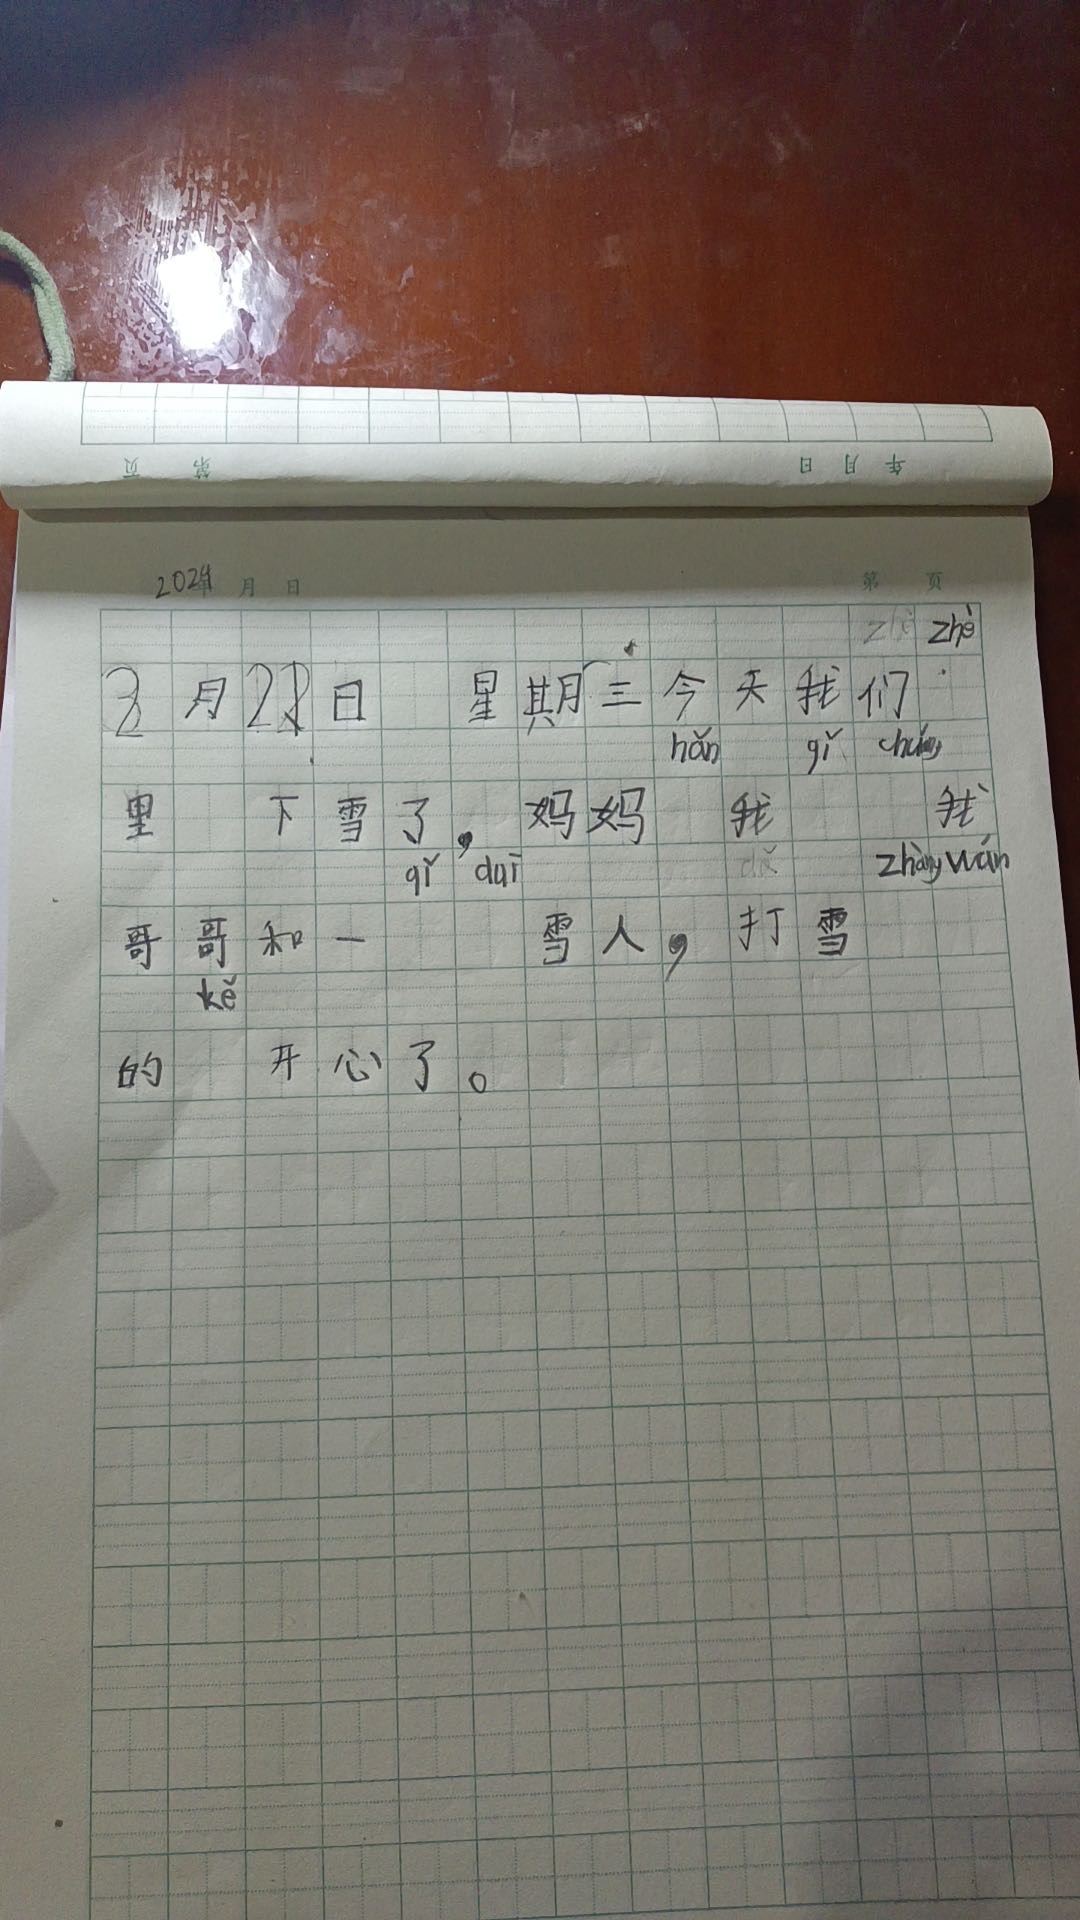 页 第 日 月 年
2024年 月 日 第 页
zhè zhè
8月28日 星期三今天我们
hǎn gǐ chuáng
里 下雪了，妈妈 我 我
gǐ duī dǎ zhàng wán
哥哥和一 雪人，打雪
kě
的 开心了。